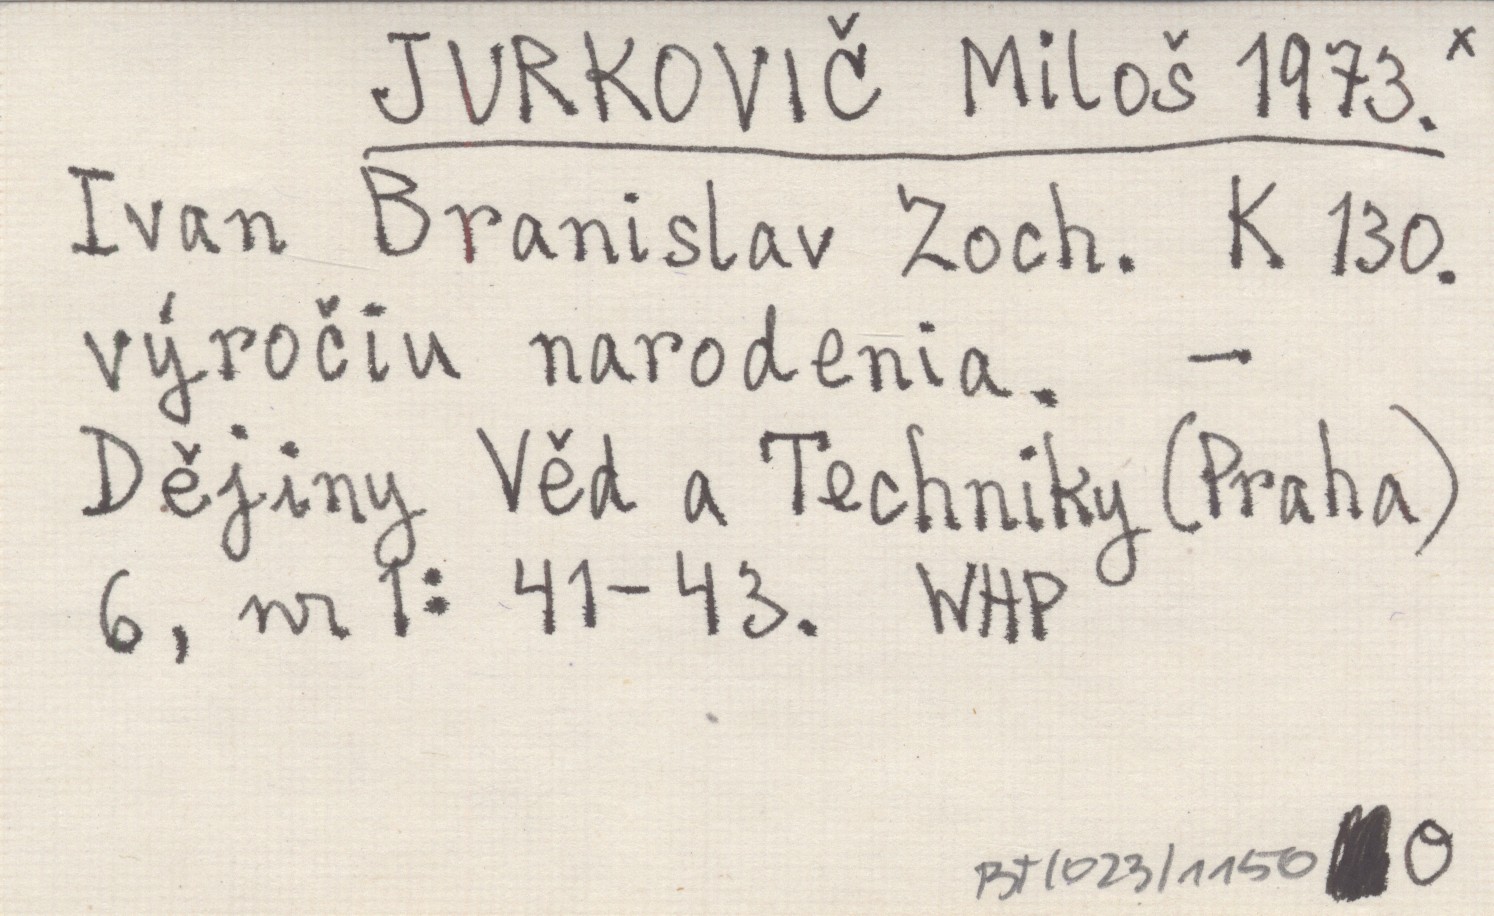 JURKOVIČ Miloš 1973.x
Ivan Branislav Zoch. K 130.
výročiu narodenia. —
Dějiny Věd a Techniky (Praha)
6, nr 1: 41-43. WHP
BT/023/1150 O